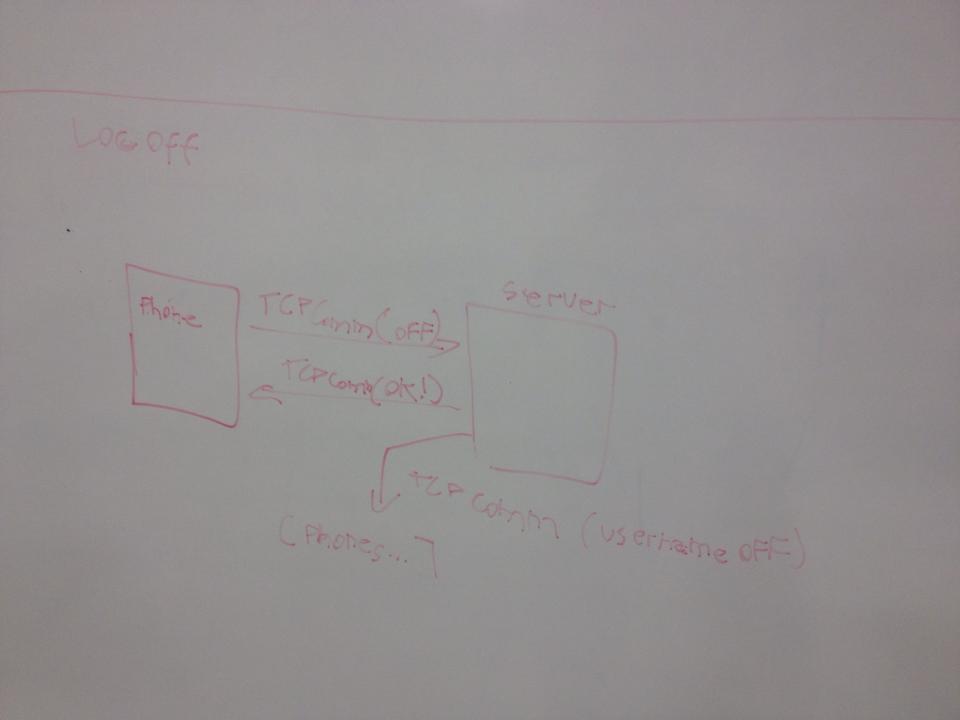 LOG OFF
Phone
Server
TCPComm(OFF)
TCPComm(OK!)
TCPComm (username OFF)
[Phones...]